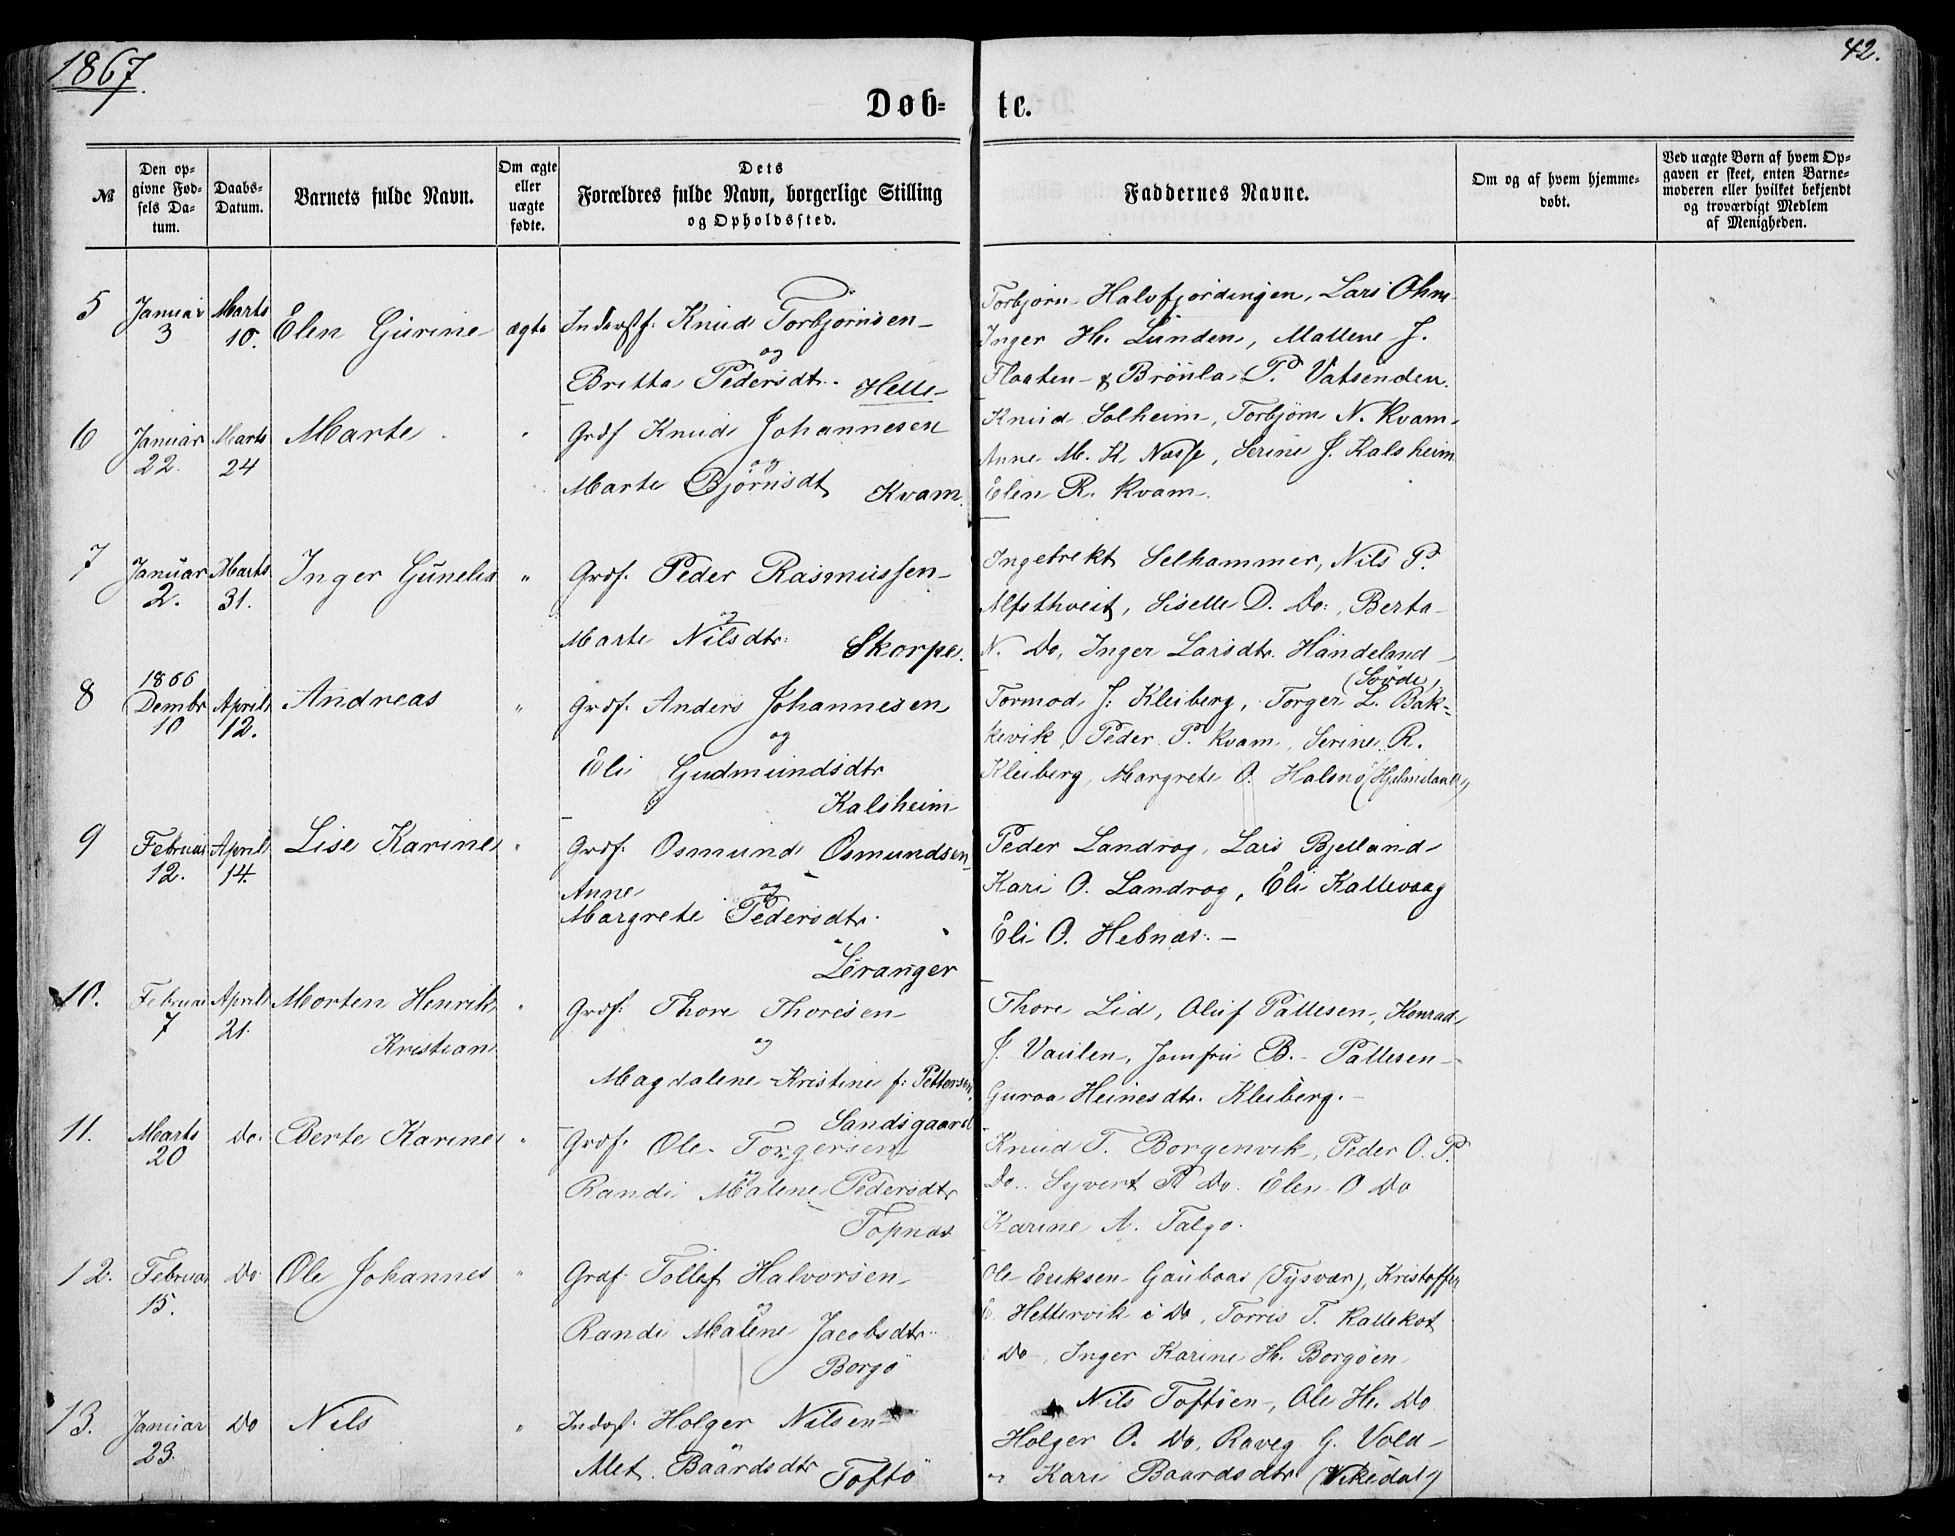 1867.
42.
Døb- te.
№
Den opgivne Fødsels Datum.
Daabs-Datum.
Barnets fulde Navn.
Om ægte eller uægte fødte.
Dets Forældres fulde Navn, borgerlige Stilling og Opholdssted.
Faddernes Navne.
Om og af hvem hjemmedøbt.
Ved uægte Børn af hvem Opgaven er skeet, enten Barnemoderen eller hvilket bekjendt og troværdigt Medlem af Menigheden.
5 Januar 3 Marts 10. Elen Gurine ægte
Inderstf: Knud Torbjørnsen
og
Britta Pedersdtr. Helle
Torbjørn Halvfjordingen, Lars Ohm
Inger H. Lunden, Mallene J.
Flaaten & Brønla P. Vatsenden.
6 Januar 22. Marts 24 Marte "
Grdf Knud Johannesen
og
Marte Bjørnsdt Kvam
Knud Solheim, Torbjørn N. Kvam
Anne M. K. Næsse, Serine J. Kalsheim
Elen R. Kvam.
7 Januar 2. Marts 31. Inger Gunelia "
Grdf. Peder Rasmussen
og
Marte Nilsdtr. Skorpe.
Ingebrekt Selhammer, Nils P.
Alfsthveit, Siselle D. Do:, Berta
N. Do, Inger Larsdtr. Handeland
(Søvde)
8 1866 Dembr 10 April 12. Andreas "
Grdf. Anders Johannesen
og
Eli Gudmundsdtr
Kalsheim
Tormod J. Kleiberg, Torger L. Bak-
kevik, Peder P. Kvam, Serine R.
Kleiberg, Margrete O. Halsnø (Hjelmeland)
9 Februar 12. April 14. Lise Karine "
Grdf. Osmund Osmundsen
Anne og
Margrete Pedersdtr.
Leranger
Peder Landrog, Lars Bjelland
Kari O. Landrog, Eli Kallevaag
Eli O. Hebnæs.
10. Februar 7 April 21. Morten Henrik "
Kristian
Grdf: Thore Thoresen
og
Magdalene Kristine f: Pettersen
Sandsgaard
Thore Lid, Oluf Pallesen, Konrad
J. Vaulen, Jomfru B. Pallesen
Guroa Heinesdtr. Kleiberg.
11. Marts 20 Do. Berte Karine "
Grdf. Ole Torgersen
og
Randi Malene Pedersdtr
Topnæs
Knud T. Borgenvik, Peder O. P.
Do. Syvert P. Do. Elen O Do
Karine A. Talgo.
12. Februar 15. Do Ole Johannes "
Grdf. Tollef Halvorsen
og
Randi Malene Jacobsdtr.
Borgø
Ole Eriksen Gauboas (Tysvær), Kristoffer
E. Hettervik i Do, Torris T. Kallekot
Do, Inger Karine H. Borgøen
13. Januar 23. Do Nils "
Inderf. Holger Nilsen
Alet Baardsdtr Toftø
Nils Toftøen, Ole H. Do
Holger O. Do, Raveg G. Vold
" Kari Baardsdtr (Vikedal)